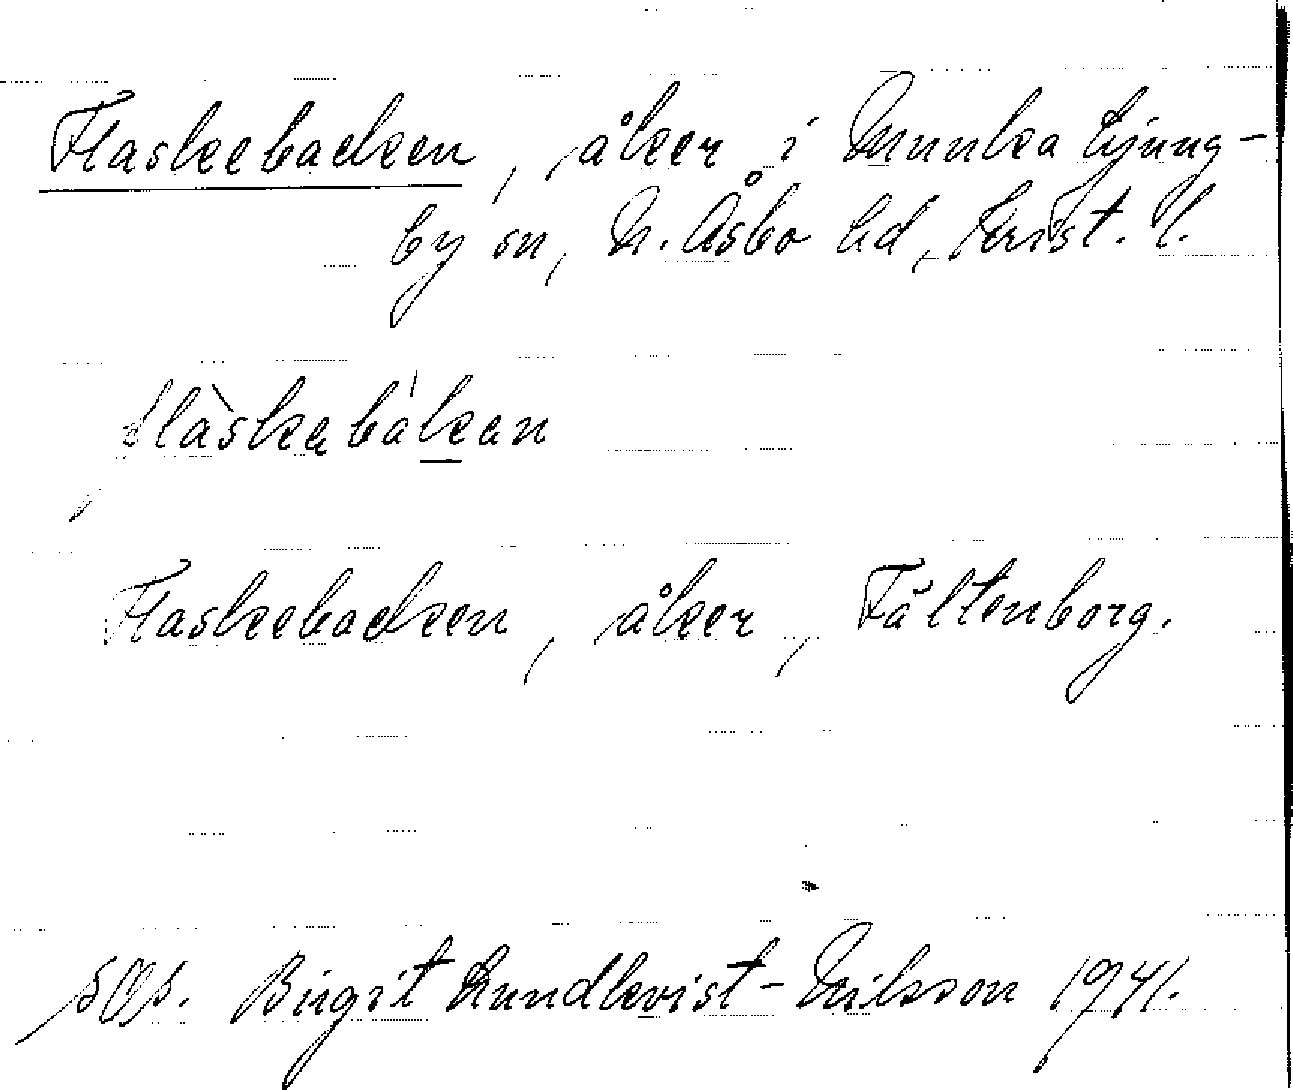 Flaskebacken, åker i Munka Ljung-
by sn, N. Åsbo hd, Krist. l.
flàskabák̠an
Flaskebacken, åker, Fältenborg.
Birgit Lundkvist-Nilsson 1941.